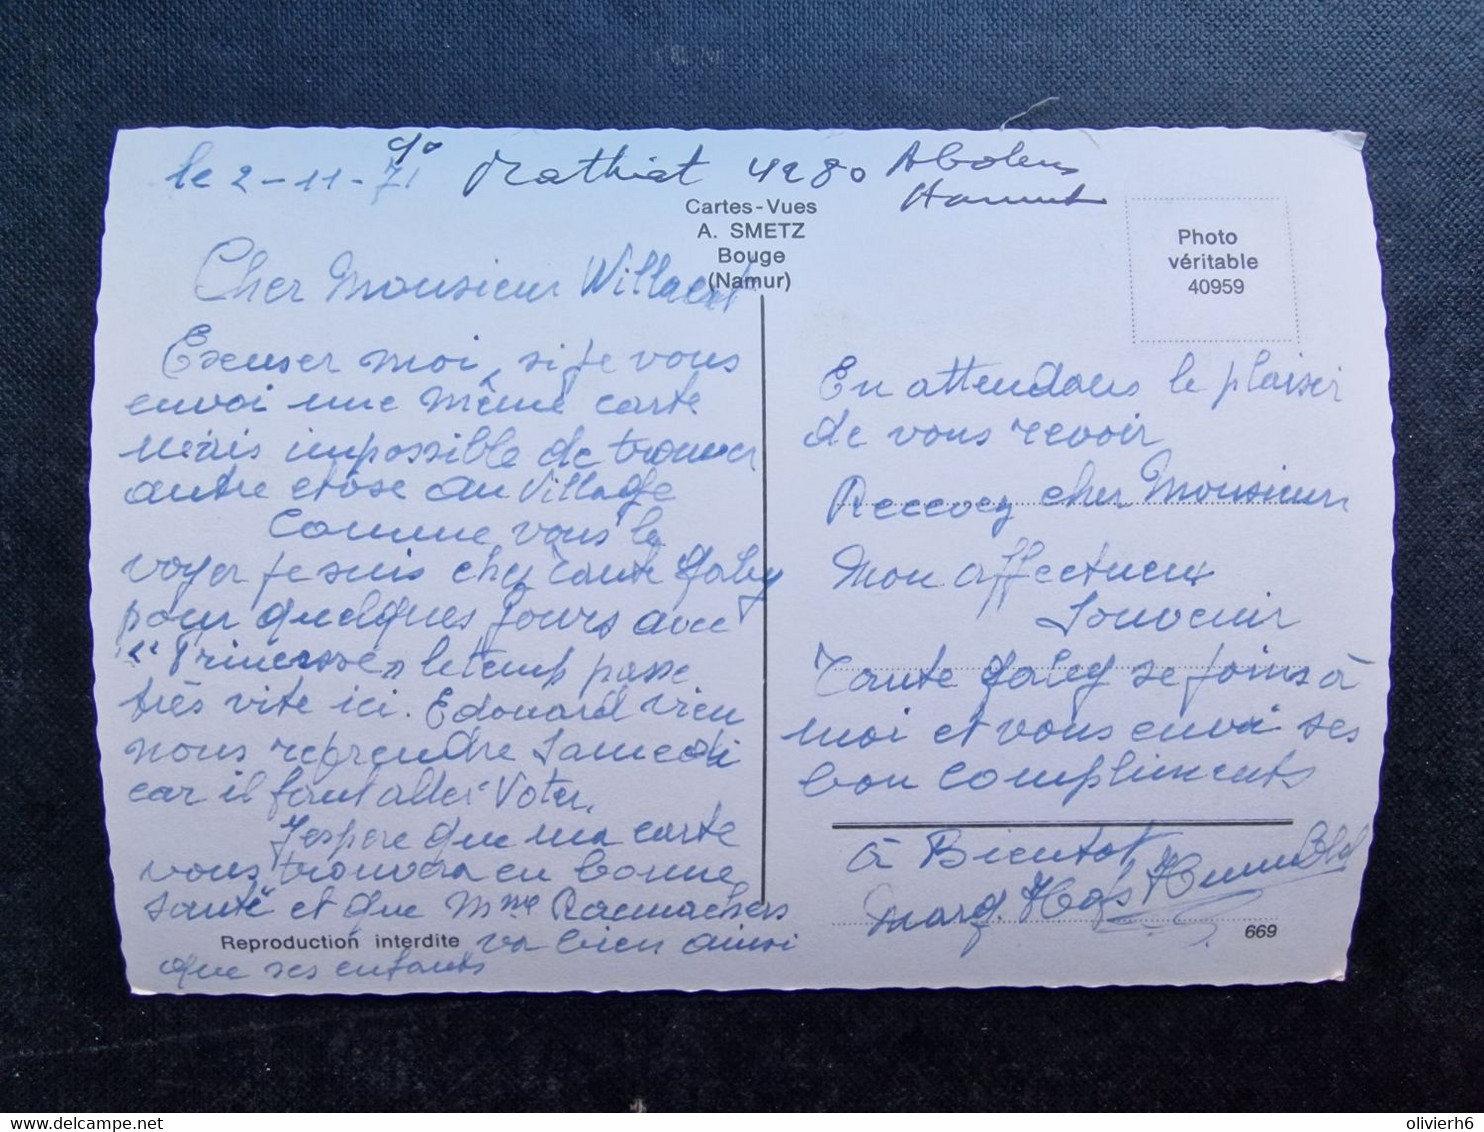 le 2-11-71 c/o Mathiat 4280 Abolens
Hannut
Cartes-Vues
A. SMETZ
Bouge
(Namur)
Photo
véritable
40959
Cher Monsieur Willaert
Excuser moi, si je vous
envoi une même carte
mais impossible de trouver
autre chose au Village
Comme vous le
voyer je suis chez Tante Galey
pour quelques jours avec
"Princesse" le temp passe
très vite ici. Edouard vien
nous reprendre Samedi
car il faut aller Voter.
J'espere que ma carte
vous trouvera en bonne
santé et que Mme Raemaekers
va bien ainsi
que ses enfants
Reproduction interdite
En attendans le plaisir
de vous revoir
Recevez cher Monsieur
Mon affectueux
Souvenir
Tante Galey se joins à
moi et vous envoi ses
bon compliments
à Bientot
Marg.
669
olivierh6